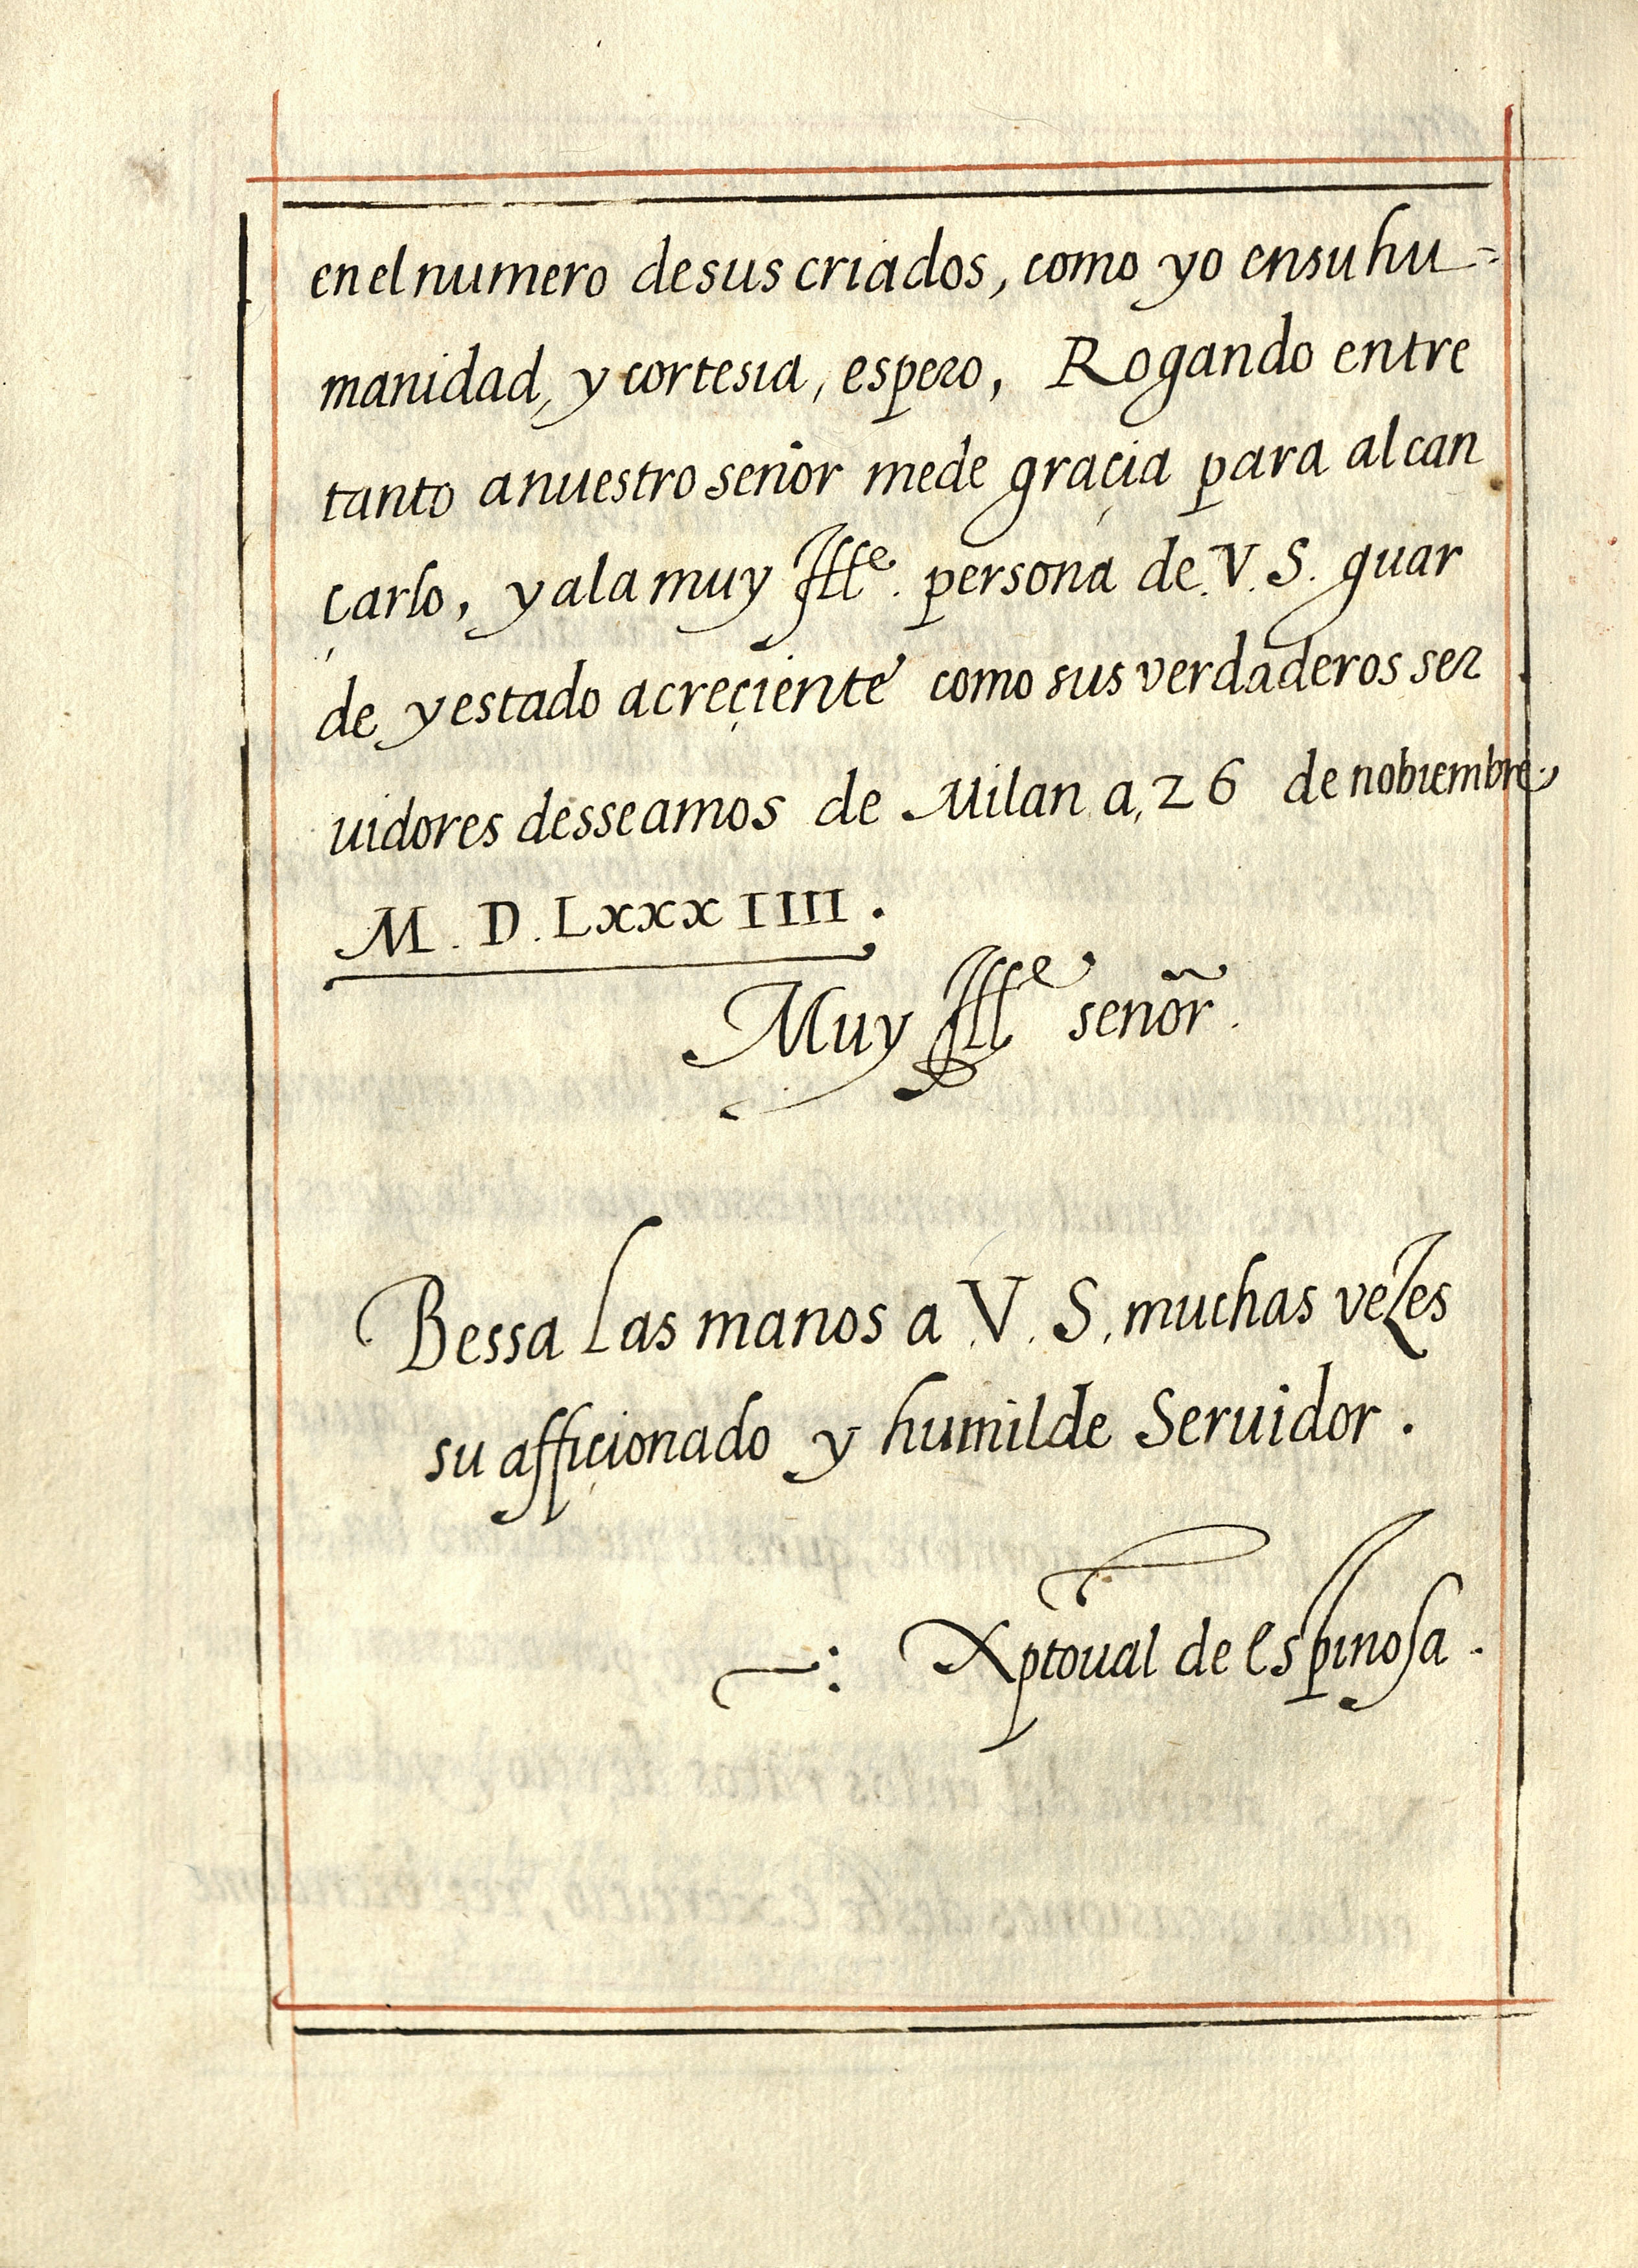 en el numero de sus criados, como yo en su hu=
manidad, y cortesia, espero, Rogando entre
tanto a nuestro señor me de graçia para alcan
çarlo, y a la muy Ill.e persona de. V. S. guar
de y estado acreçiente como sus verdaderos ser
uidores desseamos de Milan a, 26 de nobiembre.
M. D. Lxxx IIII.
Muy Ill.e señor.
Bessa las manos a V. S. muchas vezes
su affiçionado y humilde Seruidor.
Xptoual de espinosa.